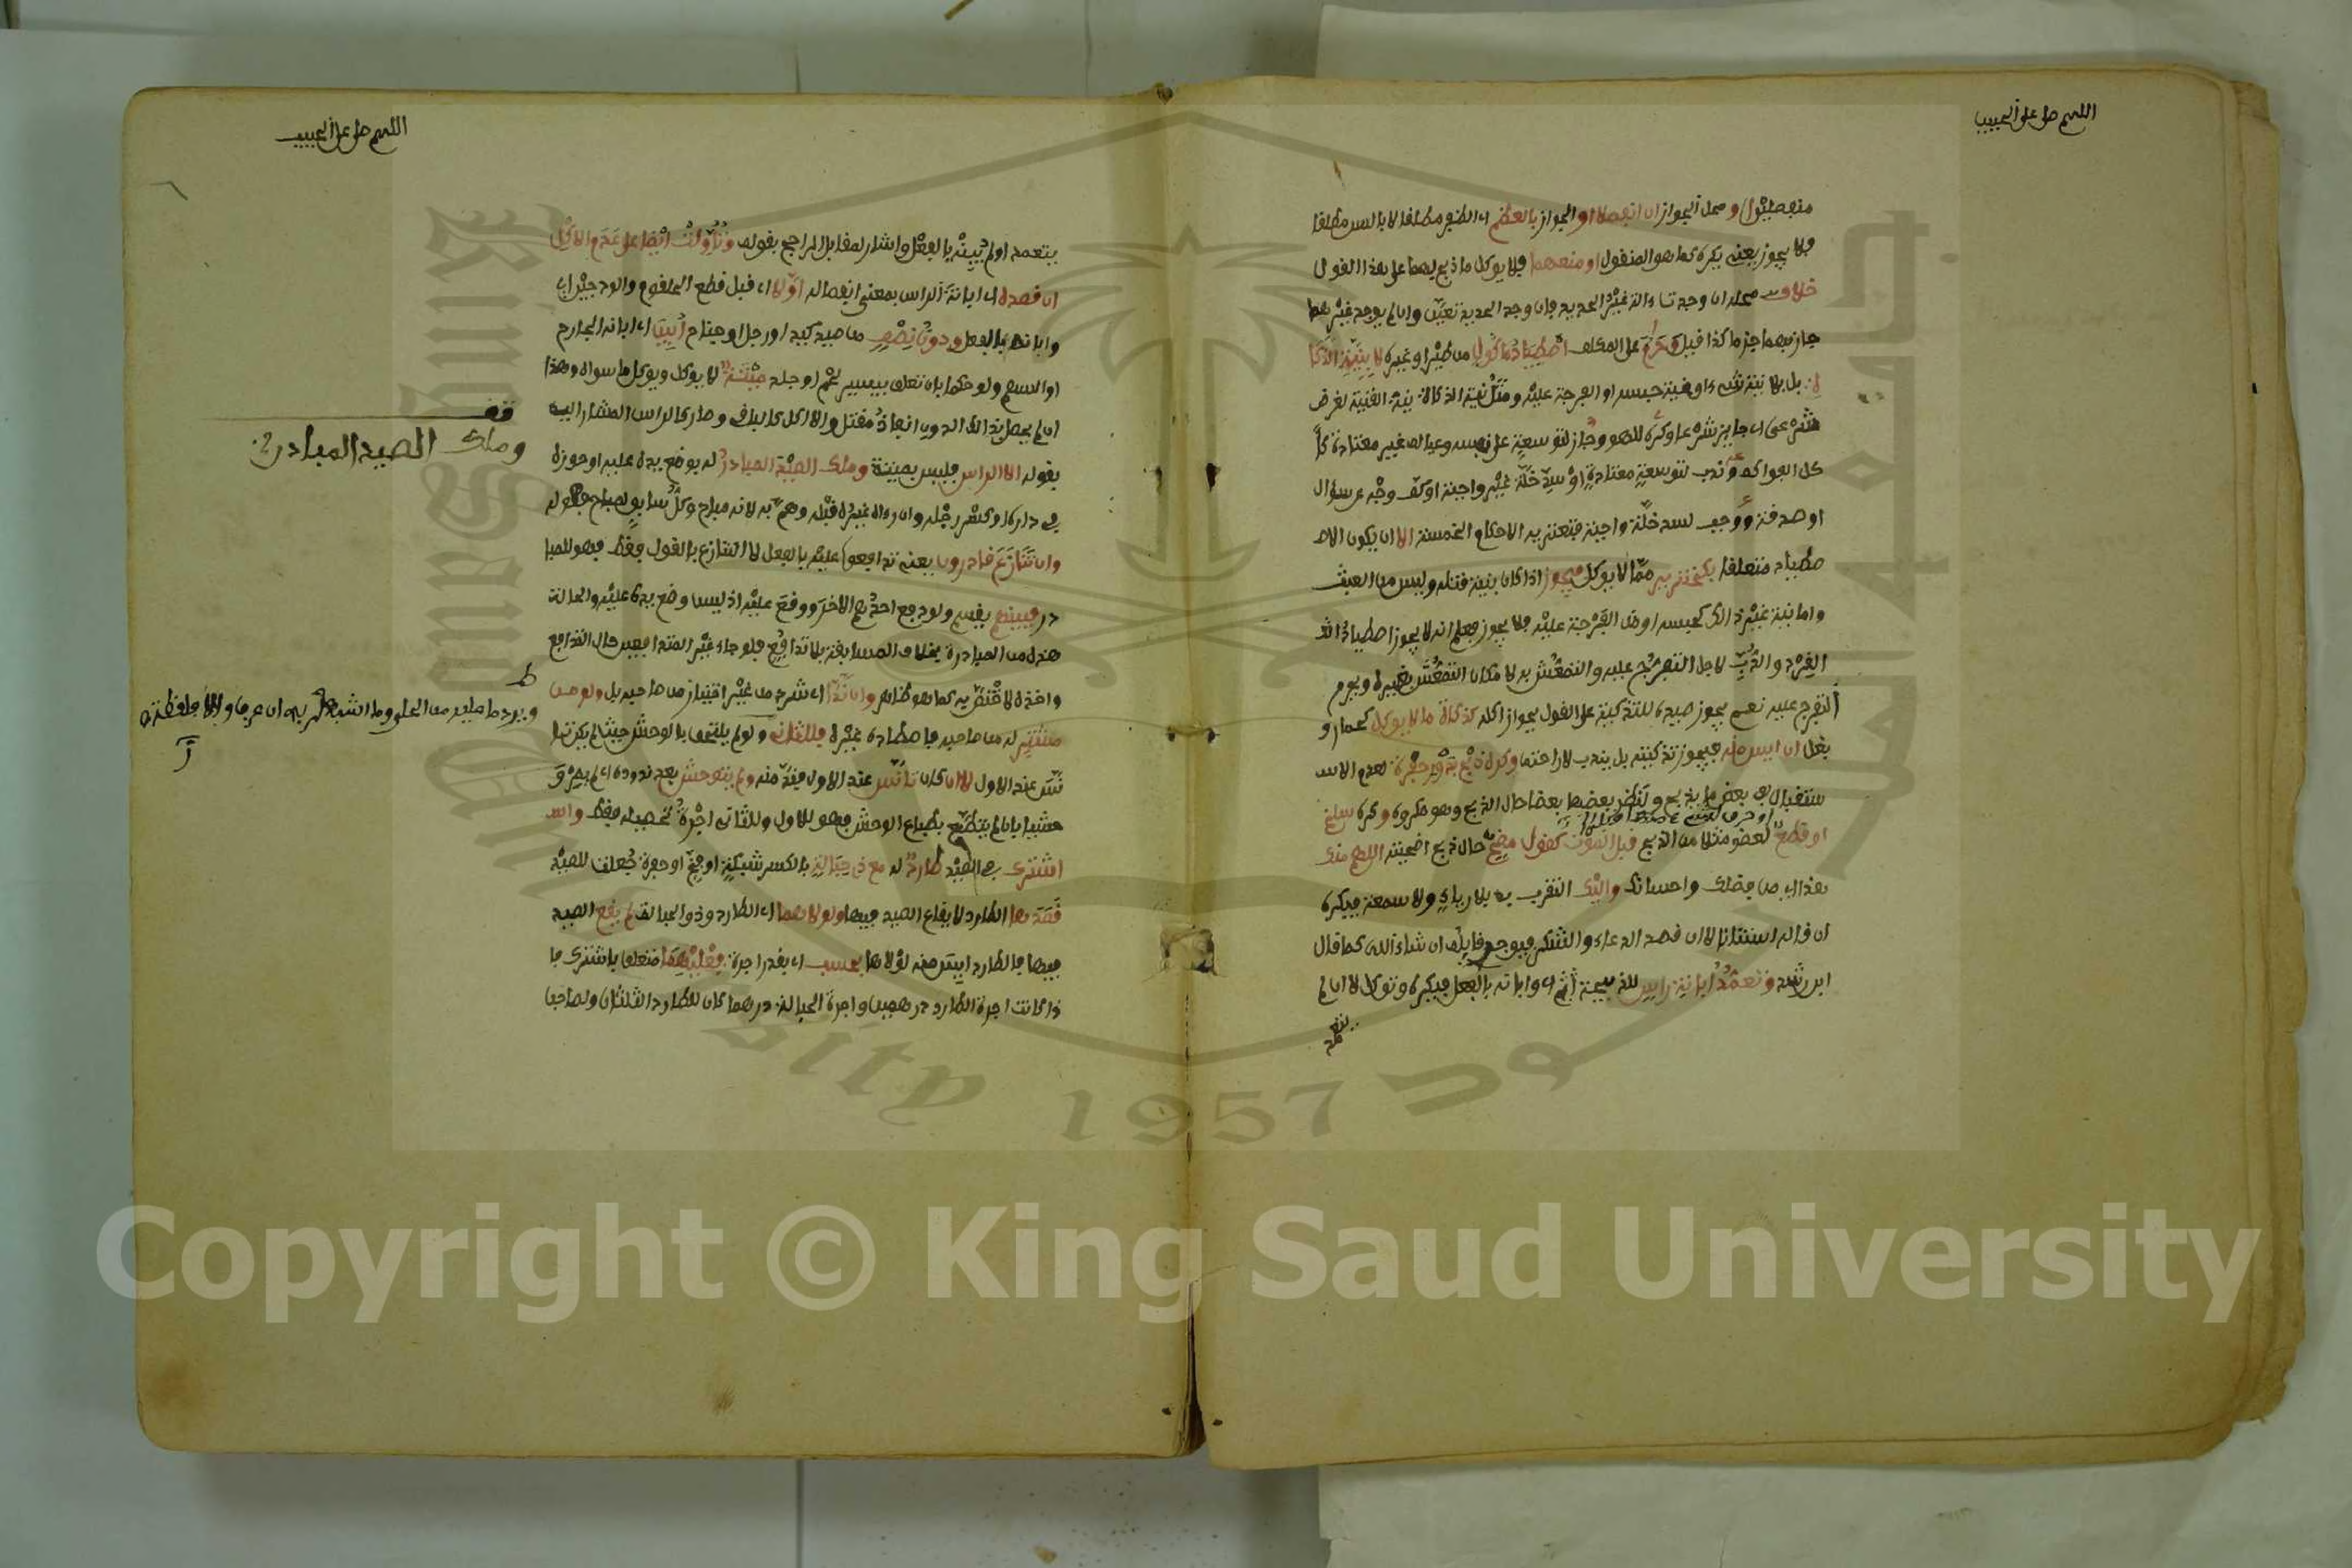 اللهم صل على الحبيب
منفصلين او محل الجواز ان انفصلا او الجواز بالعظم اى الظفر مطلقا لا بالسن مطلقا
فلا يجوز يعنى يكره كما هو المنقول او منعهما فلا يوكل ما ذبح بهما على هذا القول
خلاف محله ان وجدت ءالة غير الحديد فان وجد الحديد تعين وان لم يوجد غيرهما
جاز بهما جزما كذا قيل وحرم على المكلف اصطياد ماكول من طير او غيره لا بنية الذكا
ة بل بلا نية شىء او بنية حبسه او الفرجة عليه ومثل نية الذكاة نية القنية لغرض
شرعى اى جايز شرعا وكره للهو وجاز لتوسعة على نفسه وعياله غير معتادة كا
كل الفواكه وندب لتوسعة معتادة او سد خلة غير واجبة او كف وجه عن سؤال
او صدقة ووجب لسد خلة واجبة فتعتريه الاحكام الخمسة الا ان يكون الاص
طياد متعلقا بكخنزير مما لا يوكل فيجوز اذا كان بنية قتله وليس من العبث
واما بنية غير ذلك كحبسه او الفرجة عليه فلا يجوز فعلم انه لا يجوز اصطياد
القرد والدب لاجل التفرج عليه والتمعش به لامكان التمعش بغيره ويحرم
التفرج عليه نعم يجوز صيده للتذكية على القول بجواز اكله كذكاة ما لا يوكل كحمار و
بغل ان ايس منه فيجوز تذكيته بل يندب لاراحته وكره ذبح بدور حفرة لعدم الاس
تقبال فى بعضها ولنظر بعضها بعضا حال الذبح وهو مكروه وكره سلخ
او قطع لعضو مثلا من الذبيح قبل الموت كقول مضح حال ذبح اضحيته اللهم منك
هذا اى من فضلك واحسانك واليك التقرب به بلا رياء ولا سمعة فيكره
ان قاله استنانا لا ان قصد الدعاء والشكر فيوجر قايله ان شاء الله كما قال
ابن رشد وتعمد ابانة راس للذبيحة اى وابانه بالفعل فيكره وتوكل لا ان لم
يتعمد
اللهم صل على الحبيب
يتعمد او لم يبنه بالفعل واشار لمقابل الراجح بقوله وتؤولت ايضا على عدم الاكل
ان قصده اى ابانة الراس بمعنى انفصاله اولا اى قبل قطع الحلقوم والودجين اى
وابانه بالفعل ودون نصف من صيد كيد او رجل او جناح ابين اى ابانه الجارح
او السهم ولو حكما بان تعلق بيسير لحم او جلد ميتة لا يوكل ويوكل ما سواه وهذا
ان لم يحصل بذلك الدون انفاذ مقتل والا اكل كالباقى وصار كالراس المشار اليه
بقوله الا الراس فليس بميتة وملك الصيد المبادر له بوضع يده عليه او حوزه
فى داره او كسر رجله وان رءاه غيره قبله وهم به لانه مباح وكل سابق لمباح فهو له
وان تنازع قادرون يعنى تدافعوا عليه بالفعل لا التنازع بالقول فقط فهو للمبا
در فبينهم يقسم ولو دفع احدهم الاخر ووقع عليه اذ ليس وضع يده عليه والحالة
هذه من المبادرة بخلاف المسابقة بلا تدافع فلو جاء غير المتدافعين حال التدافع
واخذه لاختص به كما هو ظاهر وان ند اى شرد من غير اختيار من صاحبه بل ولو من
مشتر له من صاحبه فاصطاده غيره فللثانى ولو لم يلتحق بالوحش حيث لم يكن تا
نس عند الاول لا ان كان تانس عند الاول فند منه ولم يتوحش بعد ندوده اى لم يصر و
حشيا بان لم يتطبع بطباع الوحش فهو للاول وللثانى اجرة تحصيله فقط واش
اشترك فى الصيد طارد له مع ذى حبالة بالكسر شبكة او فخ او حفرة جعلت للصيد
قصدها الطارد لايقاع الصيد فيها ولولاهما اى الطارد وذو الحبالة لم يقع الصيد
فيها فالطارد ايس منه لولاها بحسب اى بقدر اجرة فعليهما متعلق باشترك فا
ذا كانت اجرة الطارد درهمين واجرة الحبالة درهما كان للطارد الثلثان ولصاحبها
قف
وملك الصيد المبادر
ويرد ما عليه من الحلى